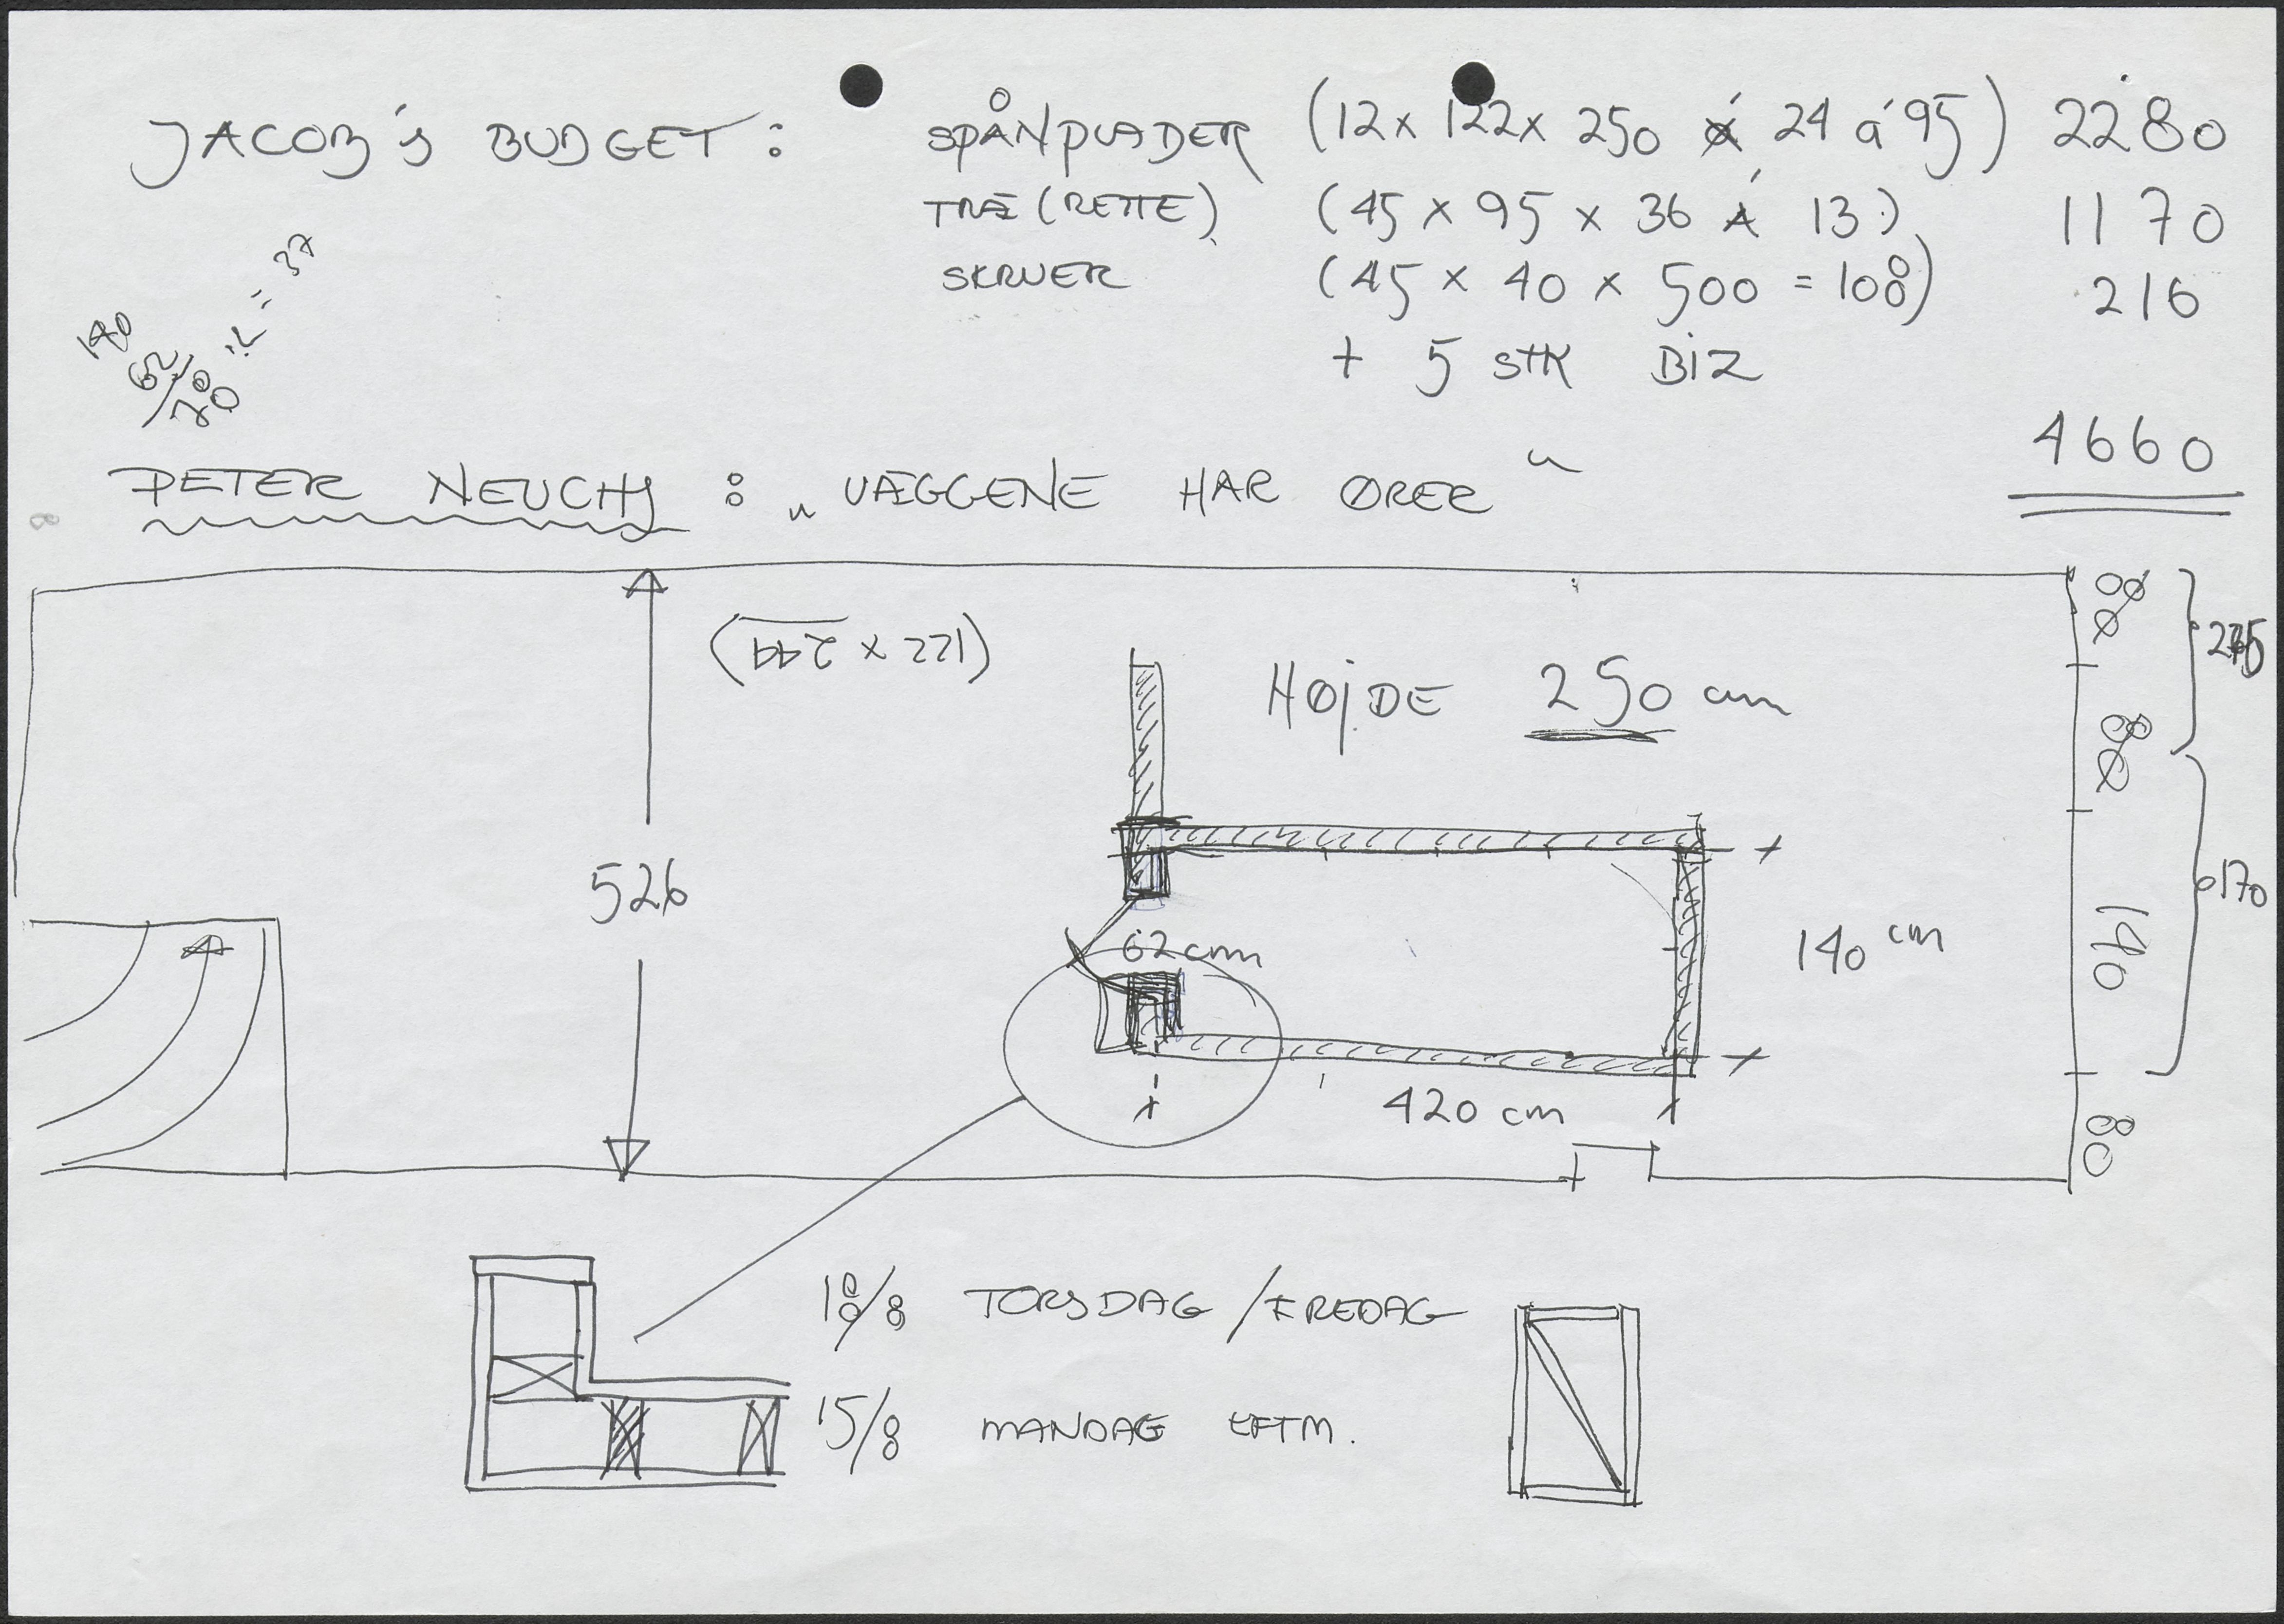 JACOB's BUDGET : SPÅNPLADER (12 x 122 x 250 á 24 á 95) 2280
TRÆ (RETTE) (45 x 95 x 36 Á 13) 1170
SKRUER (45 x 40 x 500 = 108) 216
+ 5 STK BIZ
4660
140
62/
78 :2 = 39
PETER NEUCHS : "VÆGGENE HAR ØRER"
(122 x 244)
HØJDE 250 cm
526
62 cm
140 cm
420 cm
80
80
140
80
18/8 TORSDAG / FREDAG
15/8 MANDAG EFTM.